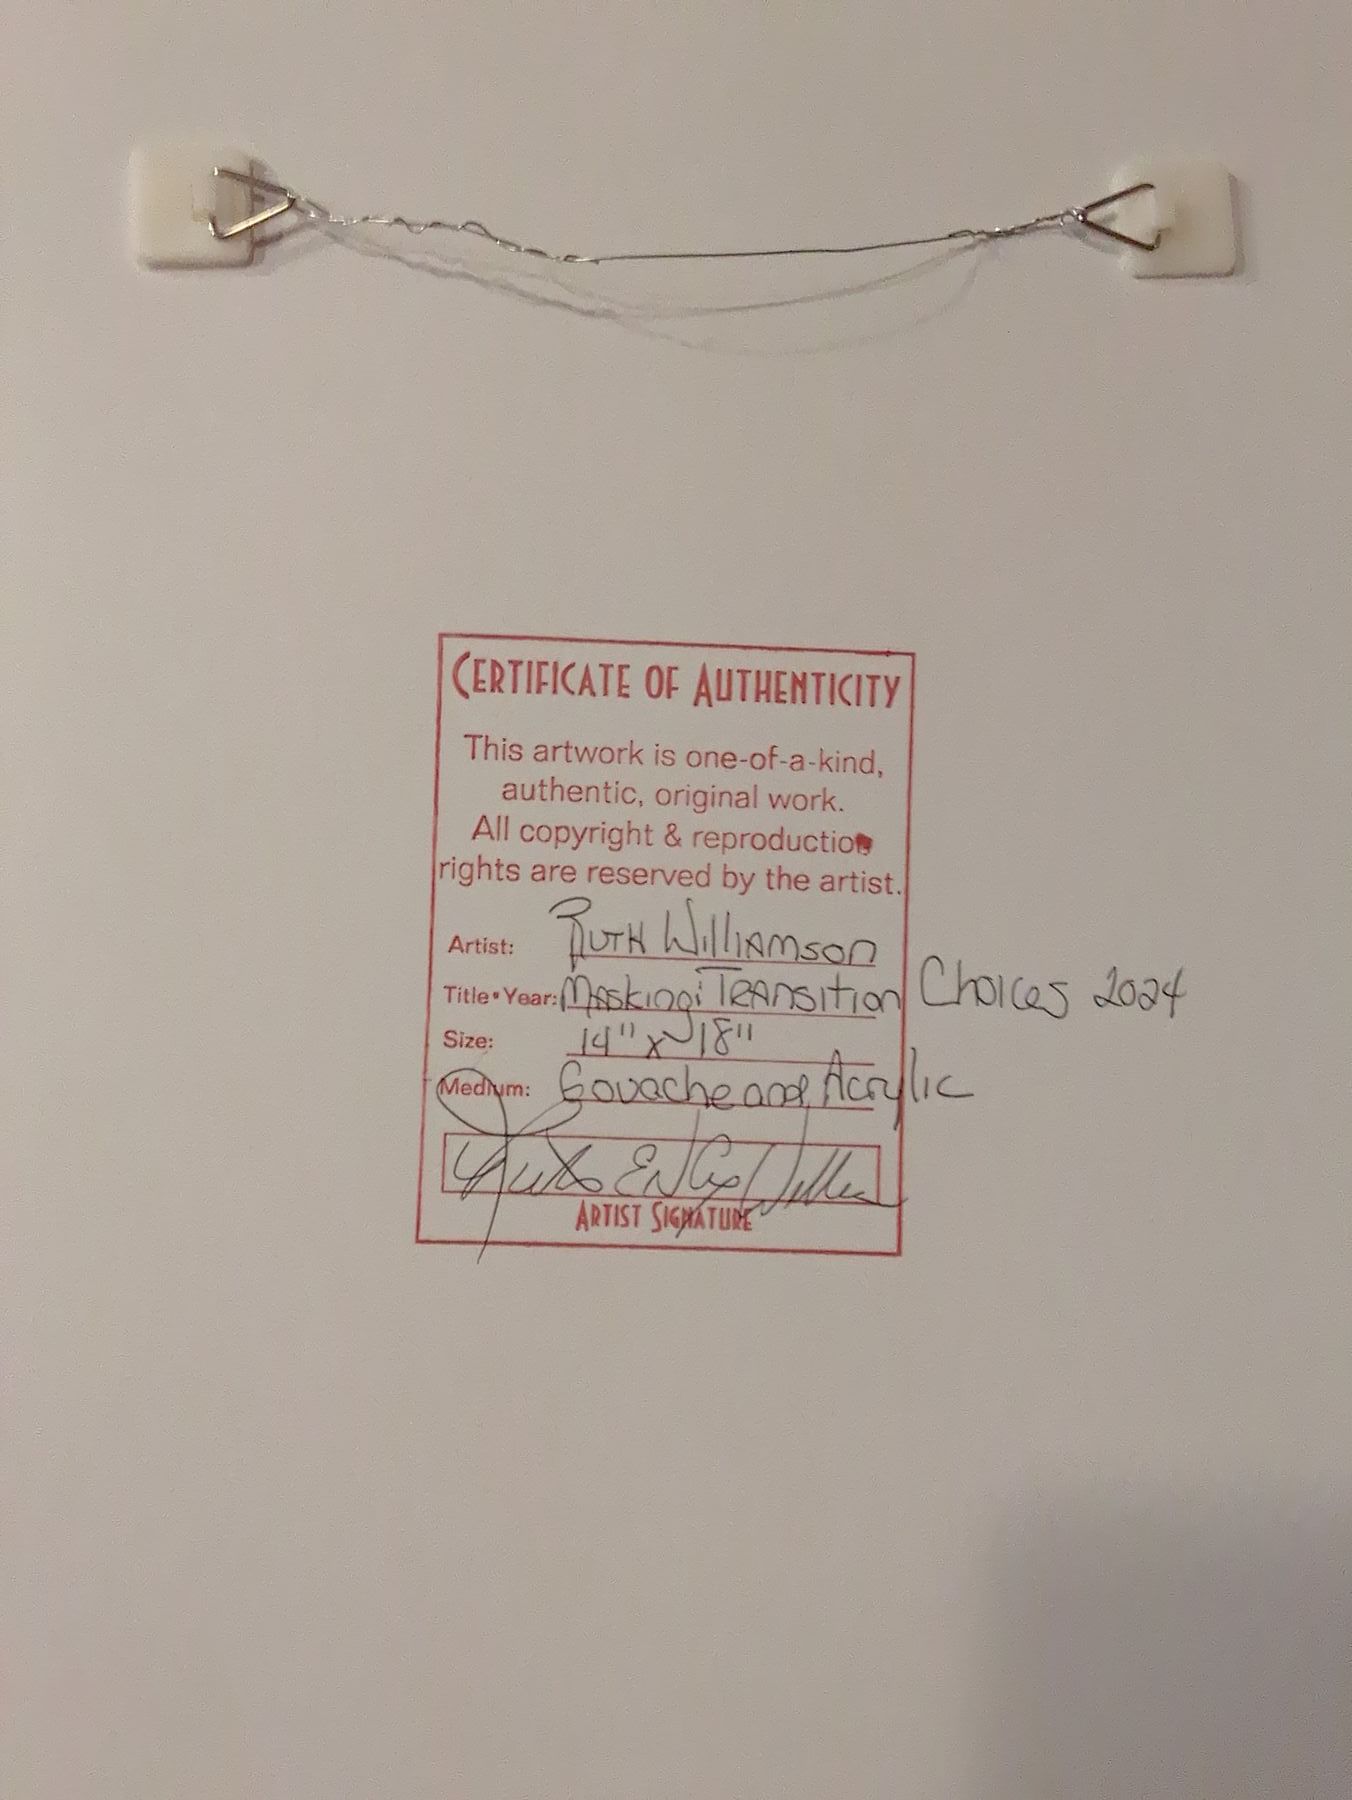 CERTIFICATE OF AUTHENTICITY
This artwork is one-of-a-kind,
authentic, original work.
All copyright & reproduction
rights are reserved by the artist.
Artist: RUTH WILLIAMSON
Title•Year: Masking: Transition Choices 2024
Size: 14" x 18"
Medium: Gouache and Acrylic
ARTIST SIGNATURE